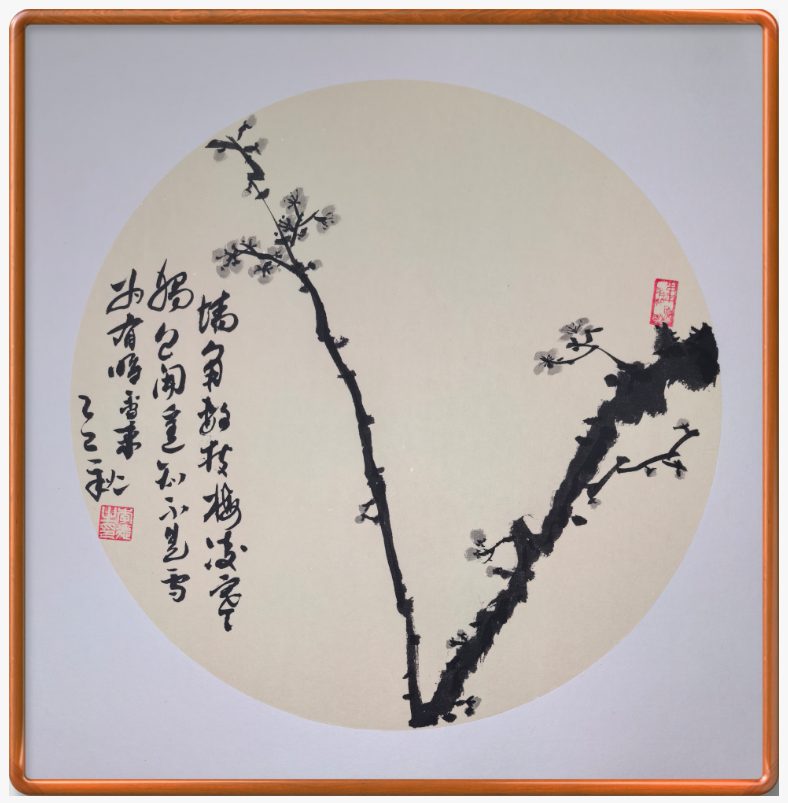 墙角数枝梅凌寒
獨自開遥知不是雪
为有暗香来
乙巳秋